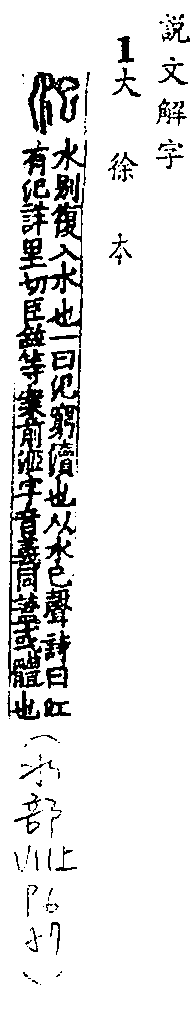 説文解字
1大徐本
汜
水別復入水也一曰汜窮瀆也从水巳聲詩曰江
有汜詳里切臣鉉等案前洍字音義同蓋或體也
（水部
VIII上
P6